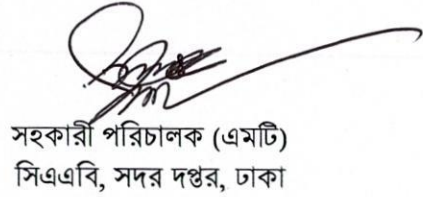 সহকারী পরিচালক (এমটি)
সিএএবি, সদর দপ্তর, ঢাকা